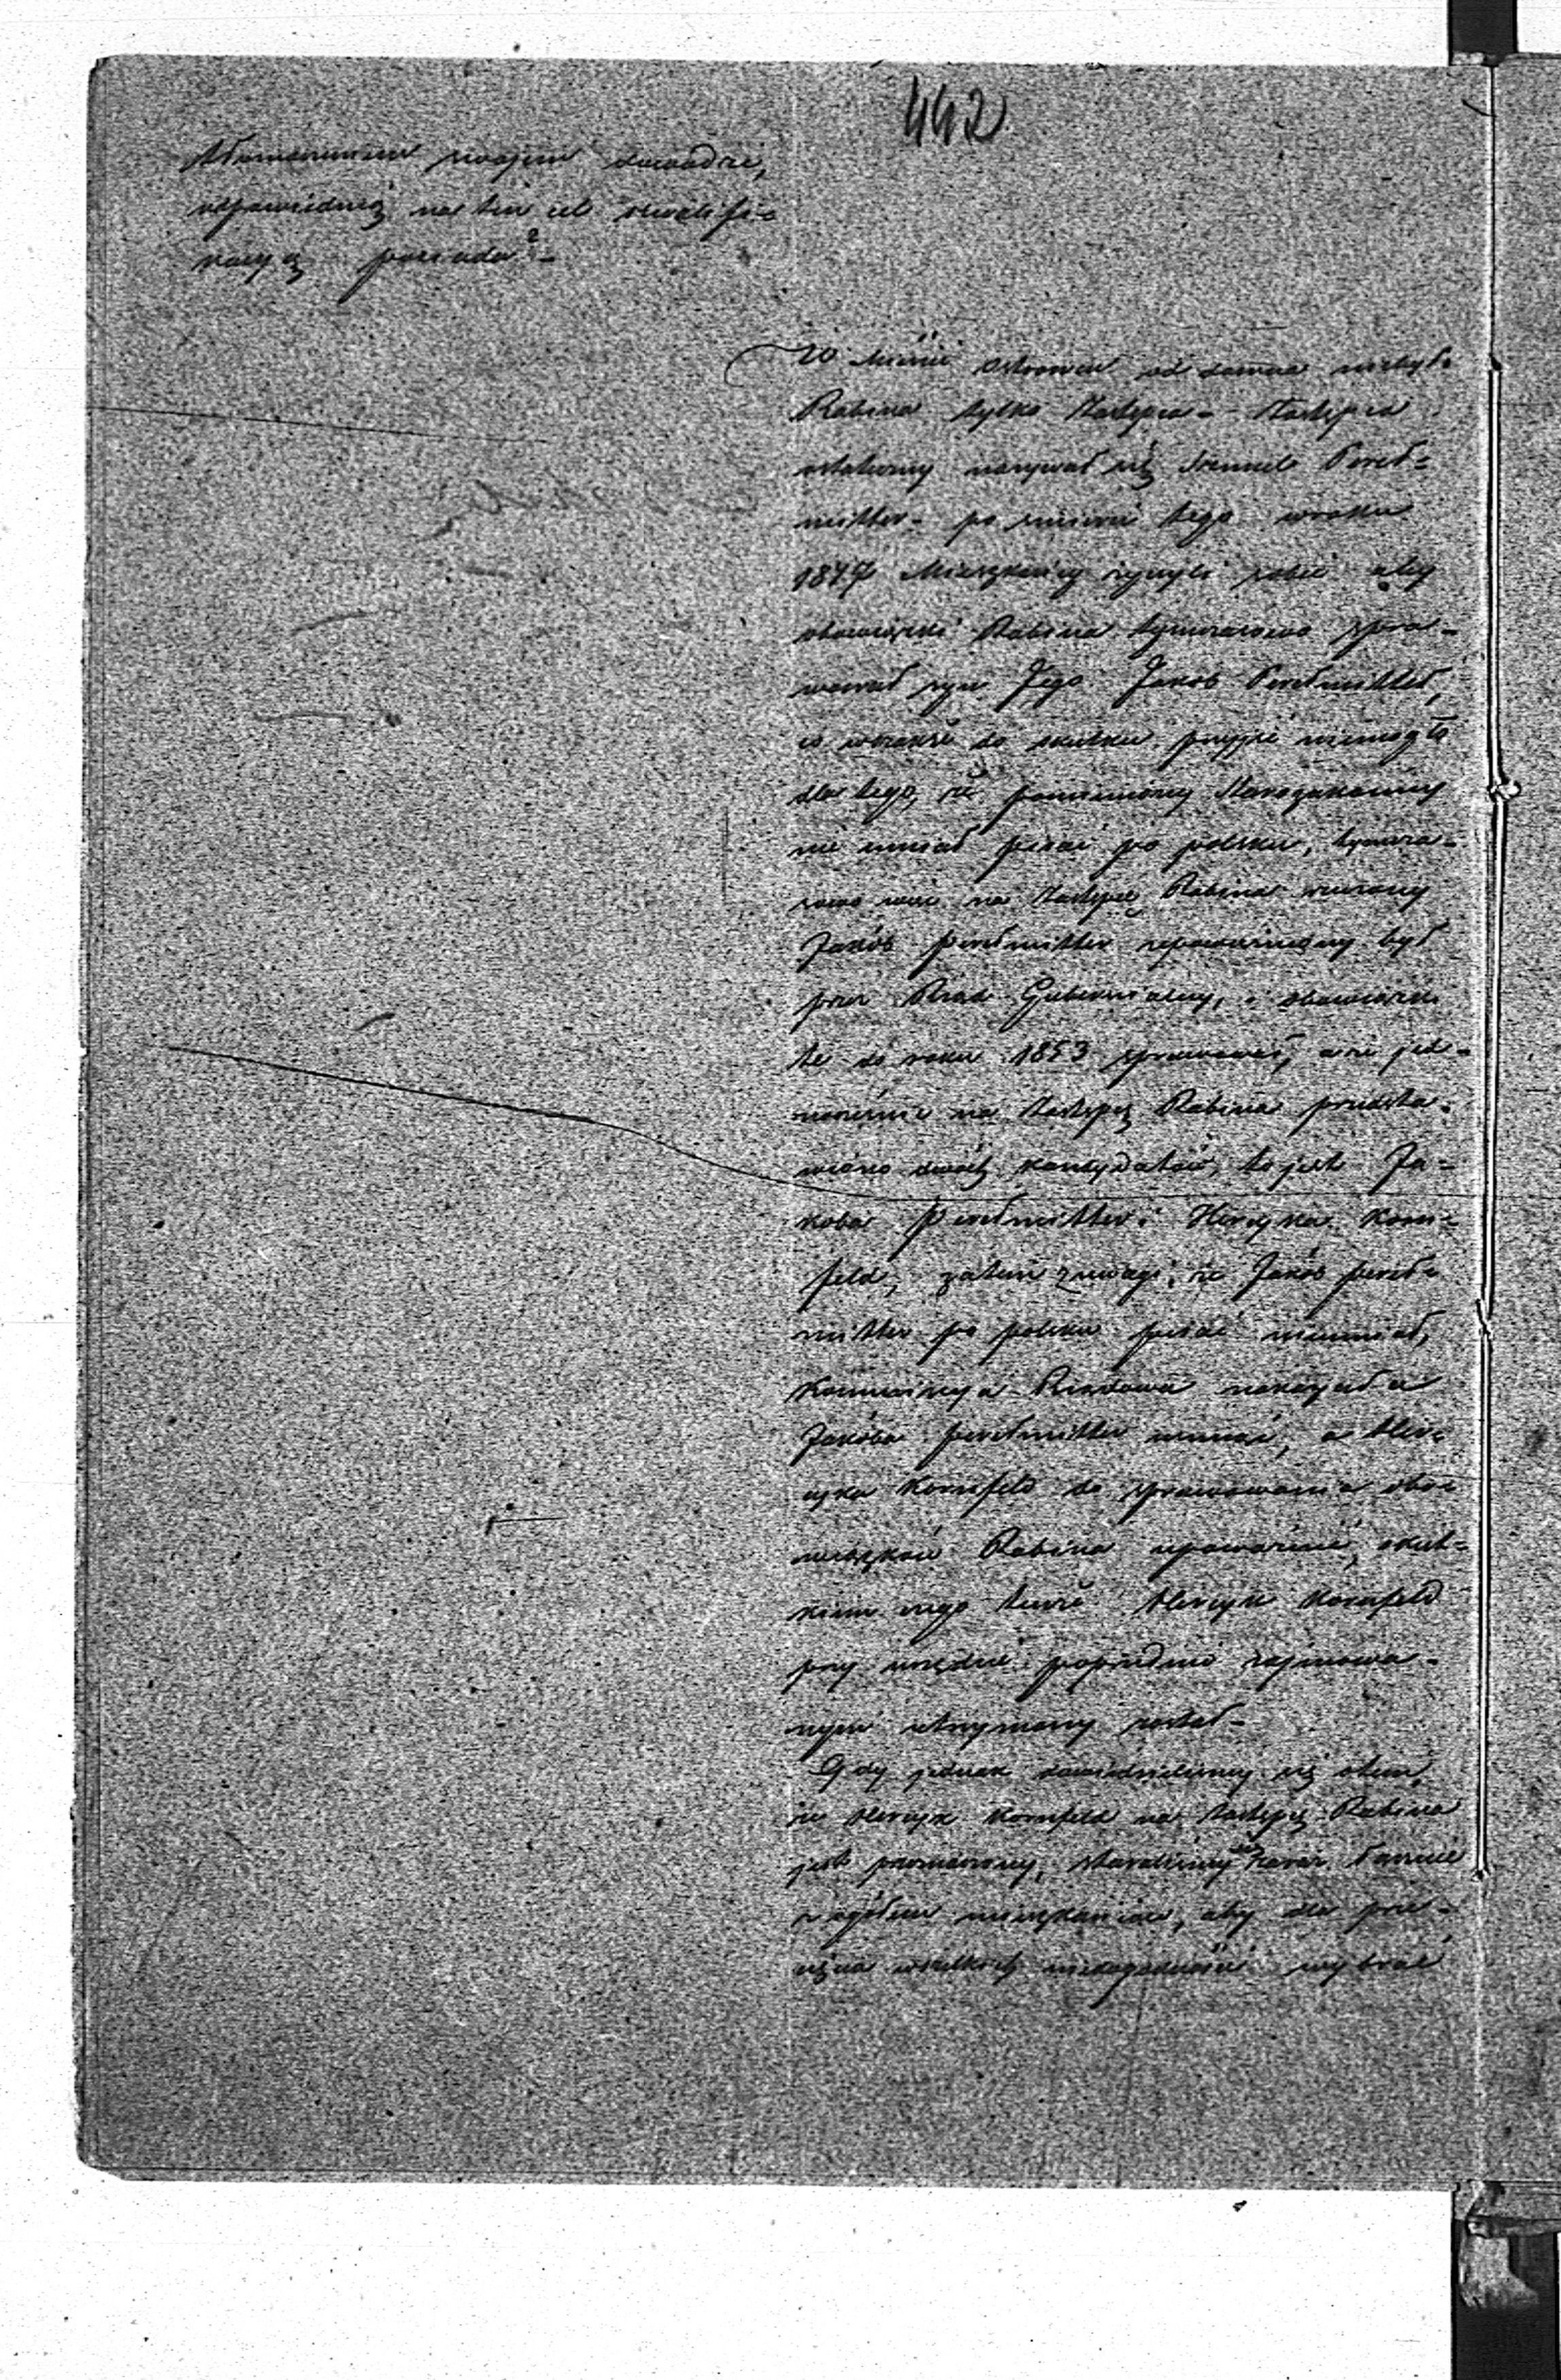 442
swojém dowodzi,
odpowiednią na ten cel kwalifi=
kacyą posiada?-
W Mieście Ostrowiu od dawna niebył
Rabina tylko Zastępca - Zastępca
ostateczny nazywał się Szmul Pereł=
mitter - po śmierci tego w roku
1847 Mieszkańcy życzyli sobie aby
obowiązki Rabina tymczasowo spra=
wował syn Jego Jakób Perelmitter,
co wszakże do skutku przyjść niemogło
dla tego, że pomieniony Starozakonny
nie umiał pisać po polsku, tymcza=
sowo więc na Zastępcę Rabina
Jakób Perelmitter upoważniony był
przez Rząd Gubernialny, i obowiązki
te do roku 1853 sprawował, a że jed=
nocześnie na Zastępcę Rabina przedsta=
wiono dwóch kandydatów, to jest Ja=
kóba Perelmitter i Herszka Korn=
feld, zatem z uwagi, że Jakób Pereł=
mitter po polsku pisać nieumiał,
Kommissya Rządowa nakazała
Jakóba Perelmitter usunąć, a Her=
szka Kornfeld do sprawowania obo=
wiązków Rabina upoważnić, skut=
kiem czego tenże Herszek Kornfeld
przy urzędzie poprzednio zajmowa=
nym utrzymany został -
Gdy jednak dowiedzieliśmy się o tem,
że Herszek Kornfeld na Zastępcę Rabina
jest przeznaczony, staraliśmy się zaraz łącznie
z ogółem mieszkańców, aby dla prze=
cięcia wszelkich niedogodności wybrać